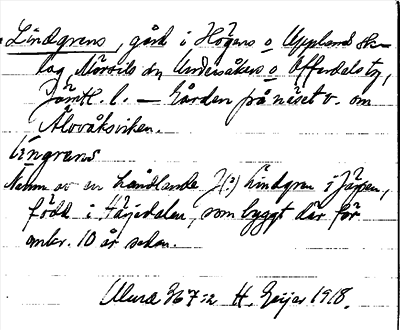 Lindgrens, gård i Högens o Upplands sk-
lag, Mörsils sn Undersåkers o Offerdals tg,
Jämtl. l. — Gården på näset v. om
Ålovåksviken.
Liŋgrens
Namn av en handlande J(?) Lindgren i Järpen,
född i Härjedalen, som byggt där för
omkr. 10 år sedan.
H. Geijer 1918.